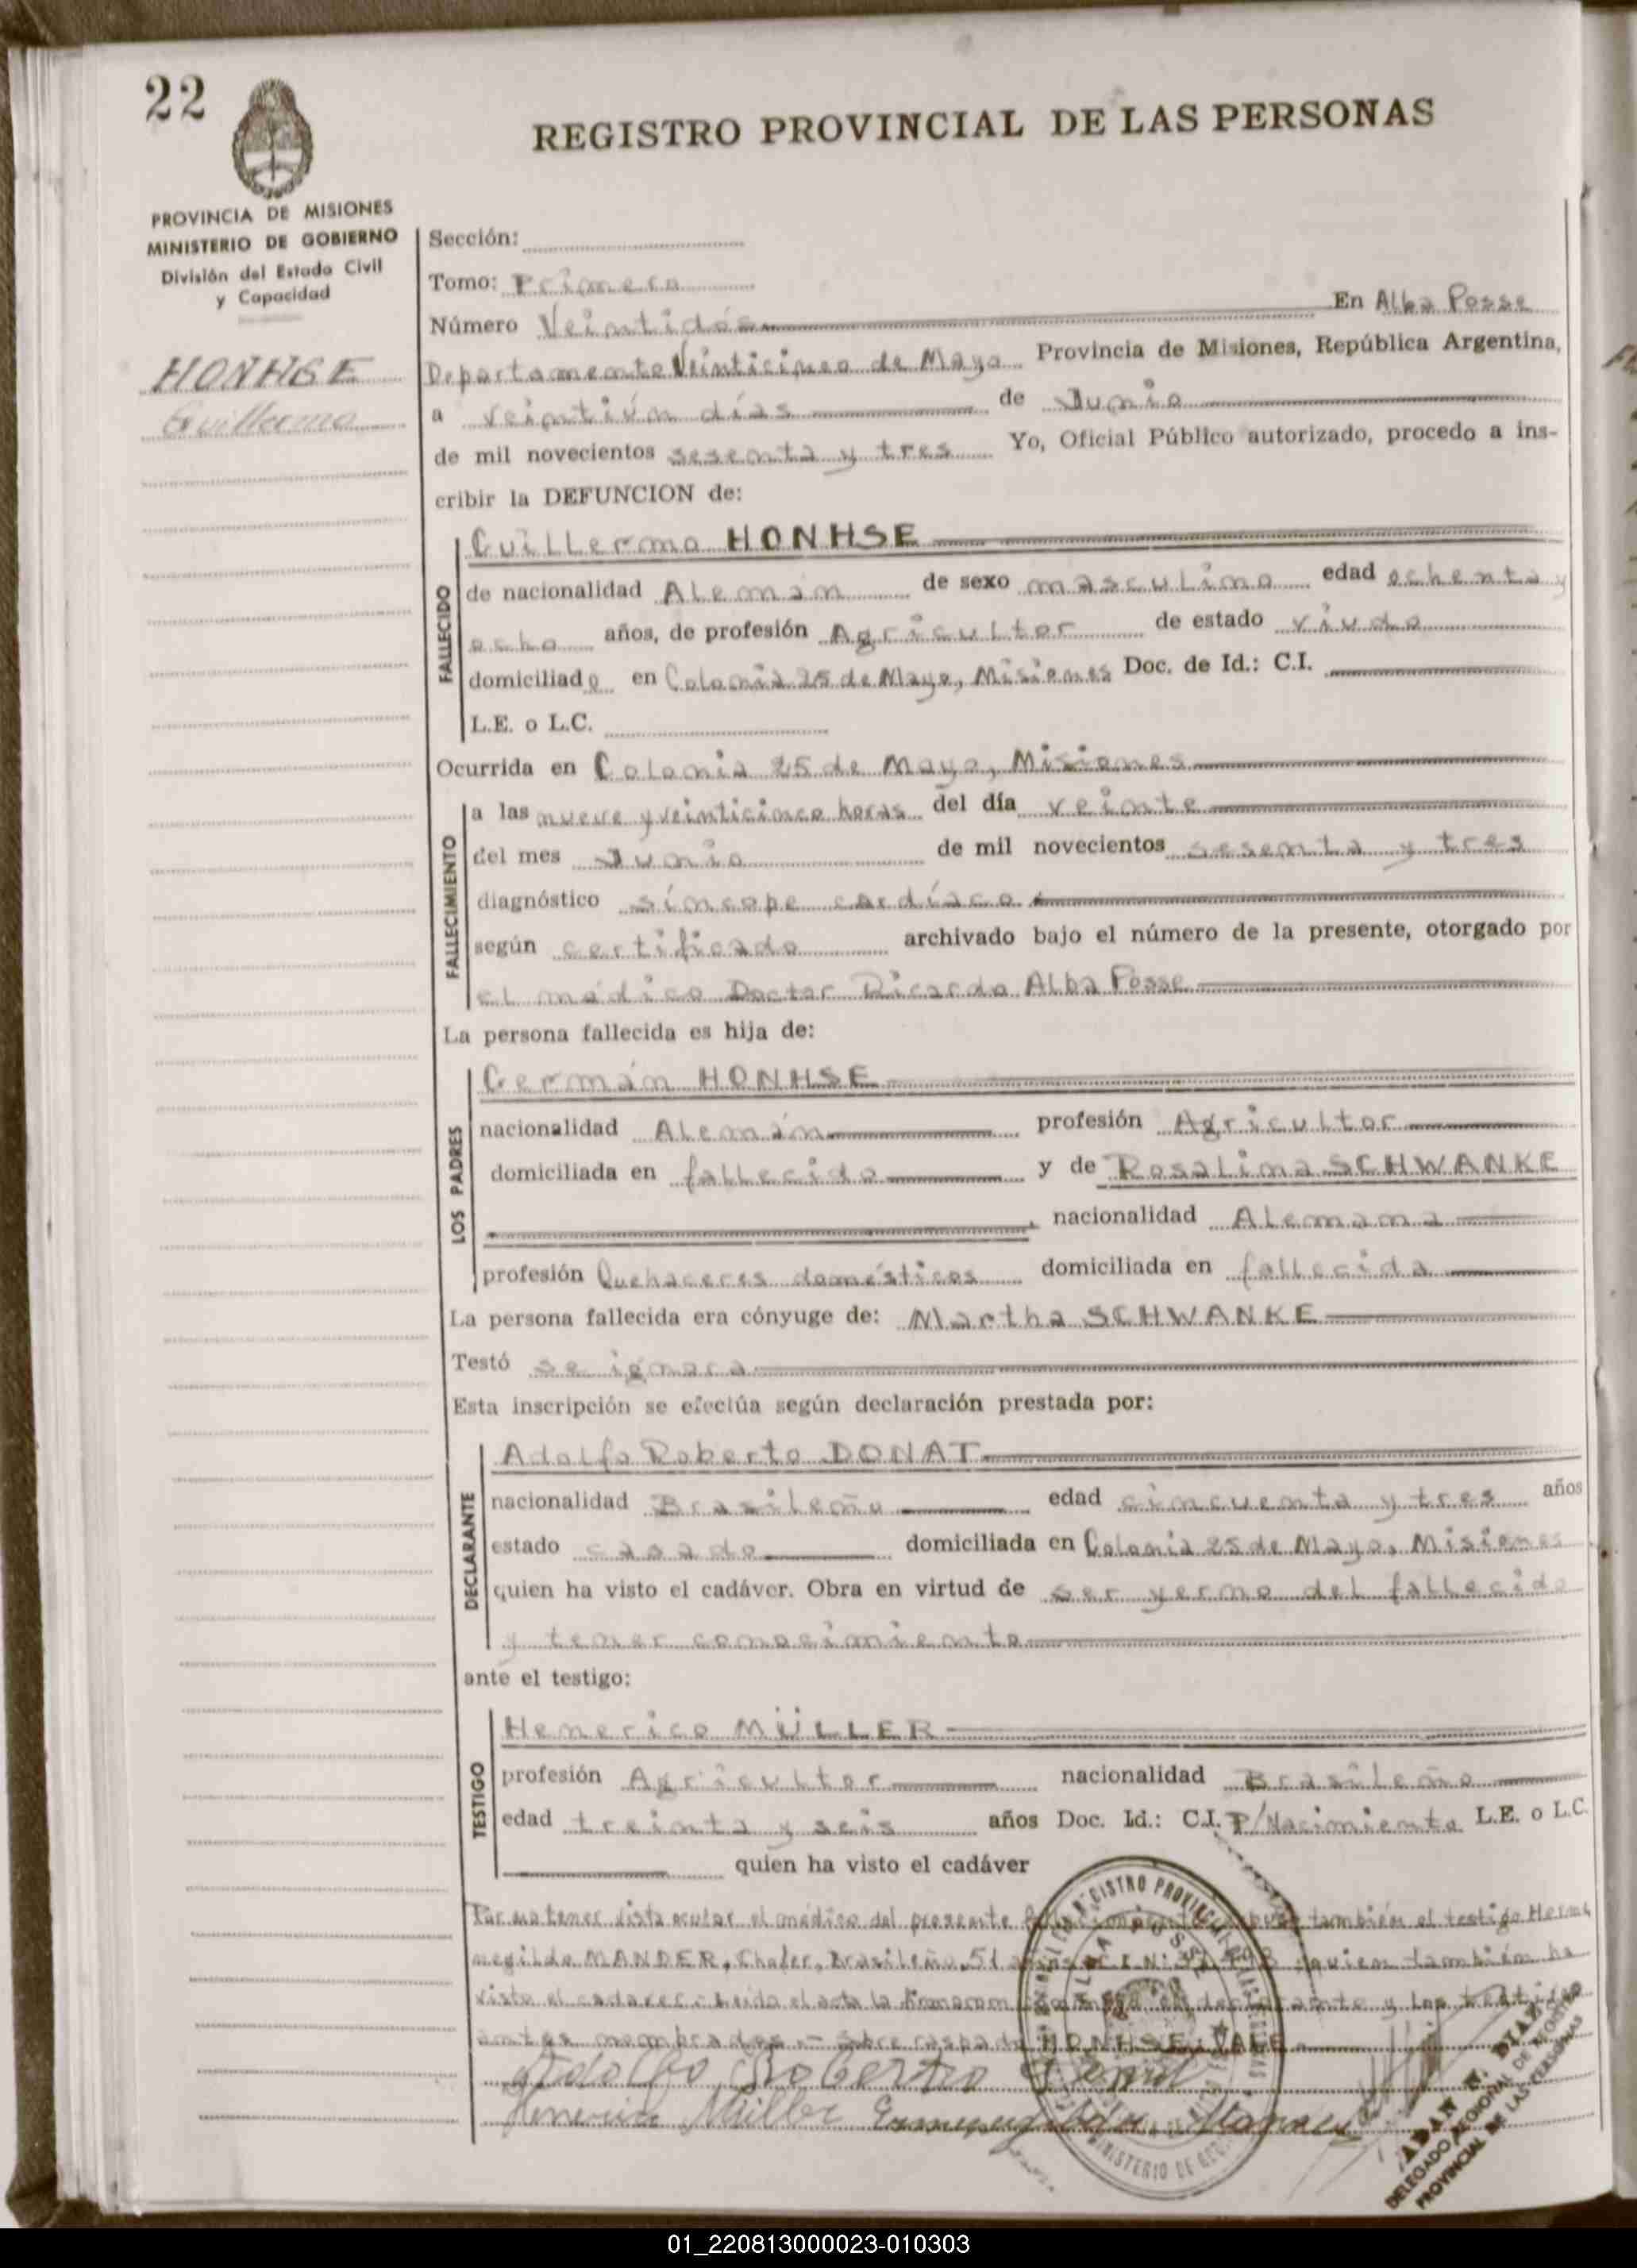 22
REGISTRO PROVINCIAL DE LAS PERSONAS
PROVINCIA DE MISIONES
MINISTERIO DE GOBIERNO
División del Estado Civil
y Capacidad
HONHSE
Guillermo
Sección:
Tomo: Primero
Número Veintidós En Alba Posse
Departamento Veinticinco de Mayo Provincia de Misiones, República Argentina,
a veintiún días de Junio
de mil novecientos sesenta y tres Yo, Oficial Público autorizado, procedo a ins-
cribir la DEFUNCION de:
Guillermo HONHSE
FALLECIDO
de nacionalidad Alemán de sexo masculino edad ochenta y
ocho años, de profesión Agricultor de estado viudo
domiciliado en Colonia 25 de Mayo, Misiones Doc. de Id.: C.I.
L.E. o L.C.
Ocurrida en Colonia 25 de Mayo, Misiones
FALLECIMIENTO
a las nueve y veinticinco horas del día veinte
del mes Junio de mil novecientos sesenta y tres
diagnóstico síncope cardíaco
según certificado archivado bajo el número de la presente, otorgado por
el médico Doctor Ricardo Alba Posse
La persona fallecida es hija de:
LOS PADRES
Germán HONHSE
nacionalidad Alemán profesión Agricultor
domiciliada en fallecido y de Rosalina SCHWANKE
, nacionalidad Alemana
profesión Quehaceres domésticos domiciliada en fallecida
La persona fallecida era cónyuge de: Martha SCHWANKE
Testó se ignora
Esta inscripción se efectúa según declaración prestada por:
DECLARANTE
Adolfo Roberto DONAT
nacionalidad Brasileño edad cincuenta y tres años
estado casado domiciliada en Colonia 25 de Mayo, Misiones
quien ha visto el cadáver. Obra en virtud de ser yerno del fallecido
y tener conocimiento
ante el testigo:
TESTIGO
Henerico MÜLLER
profesión Agricultor nacionalidad Brasileño
edad treinta y seis años Doc. Id.: C.I. P/Nacimiento L.E. o L.C.
quien ha visto el cadáver
Por no tener vista ocular el médico del presente también el testigo Herme
negildo MANDER, Chofer, Brasileño, 51 quien también ha
visto el cadáver. Leída el acta la firmaron y los
antes nombrados.- Sobre raspado HONHSE: VALE.
Adolfo Roberto Donat
Henerico Müller
REGISTRO PROVINCIAL
ALBA POSSE
MINISTERIO DE
ADAN DIAZ
DELEGADO REGIONAL DE REGISTRO
PROVINCIAL DE LAS PERSONAS
01_220813000023-010303